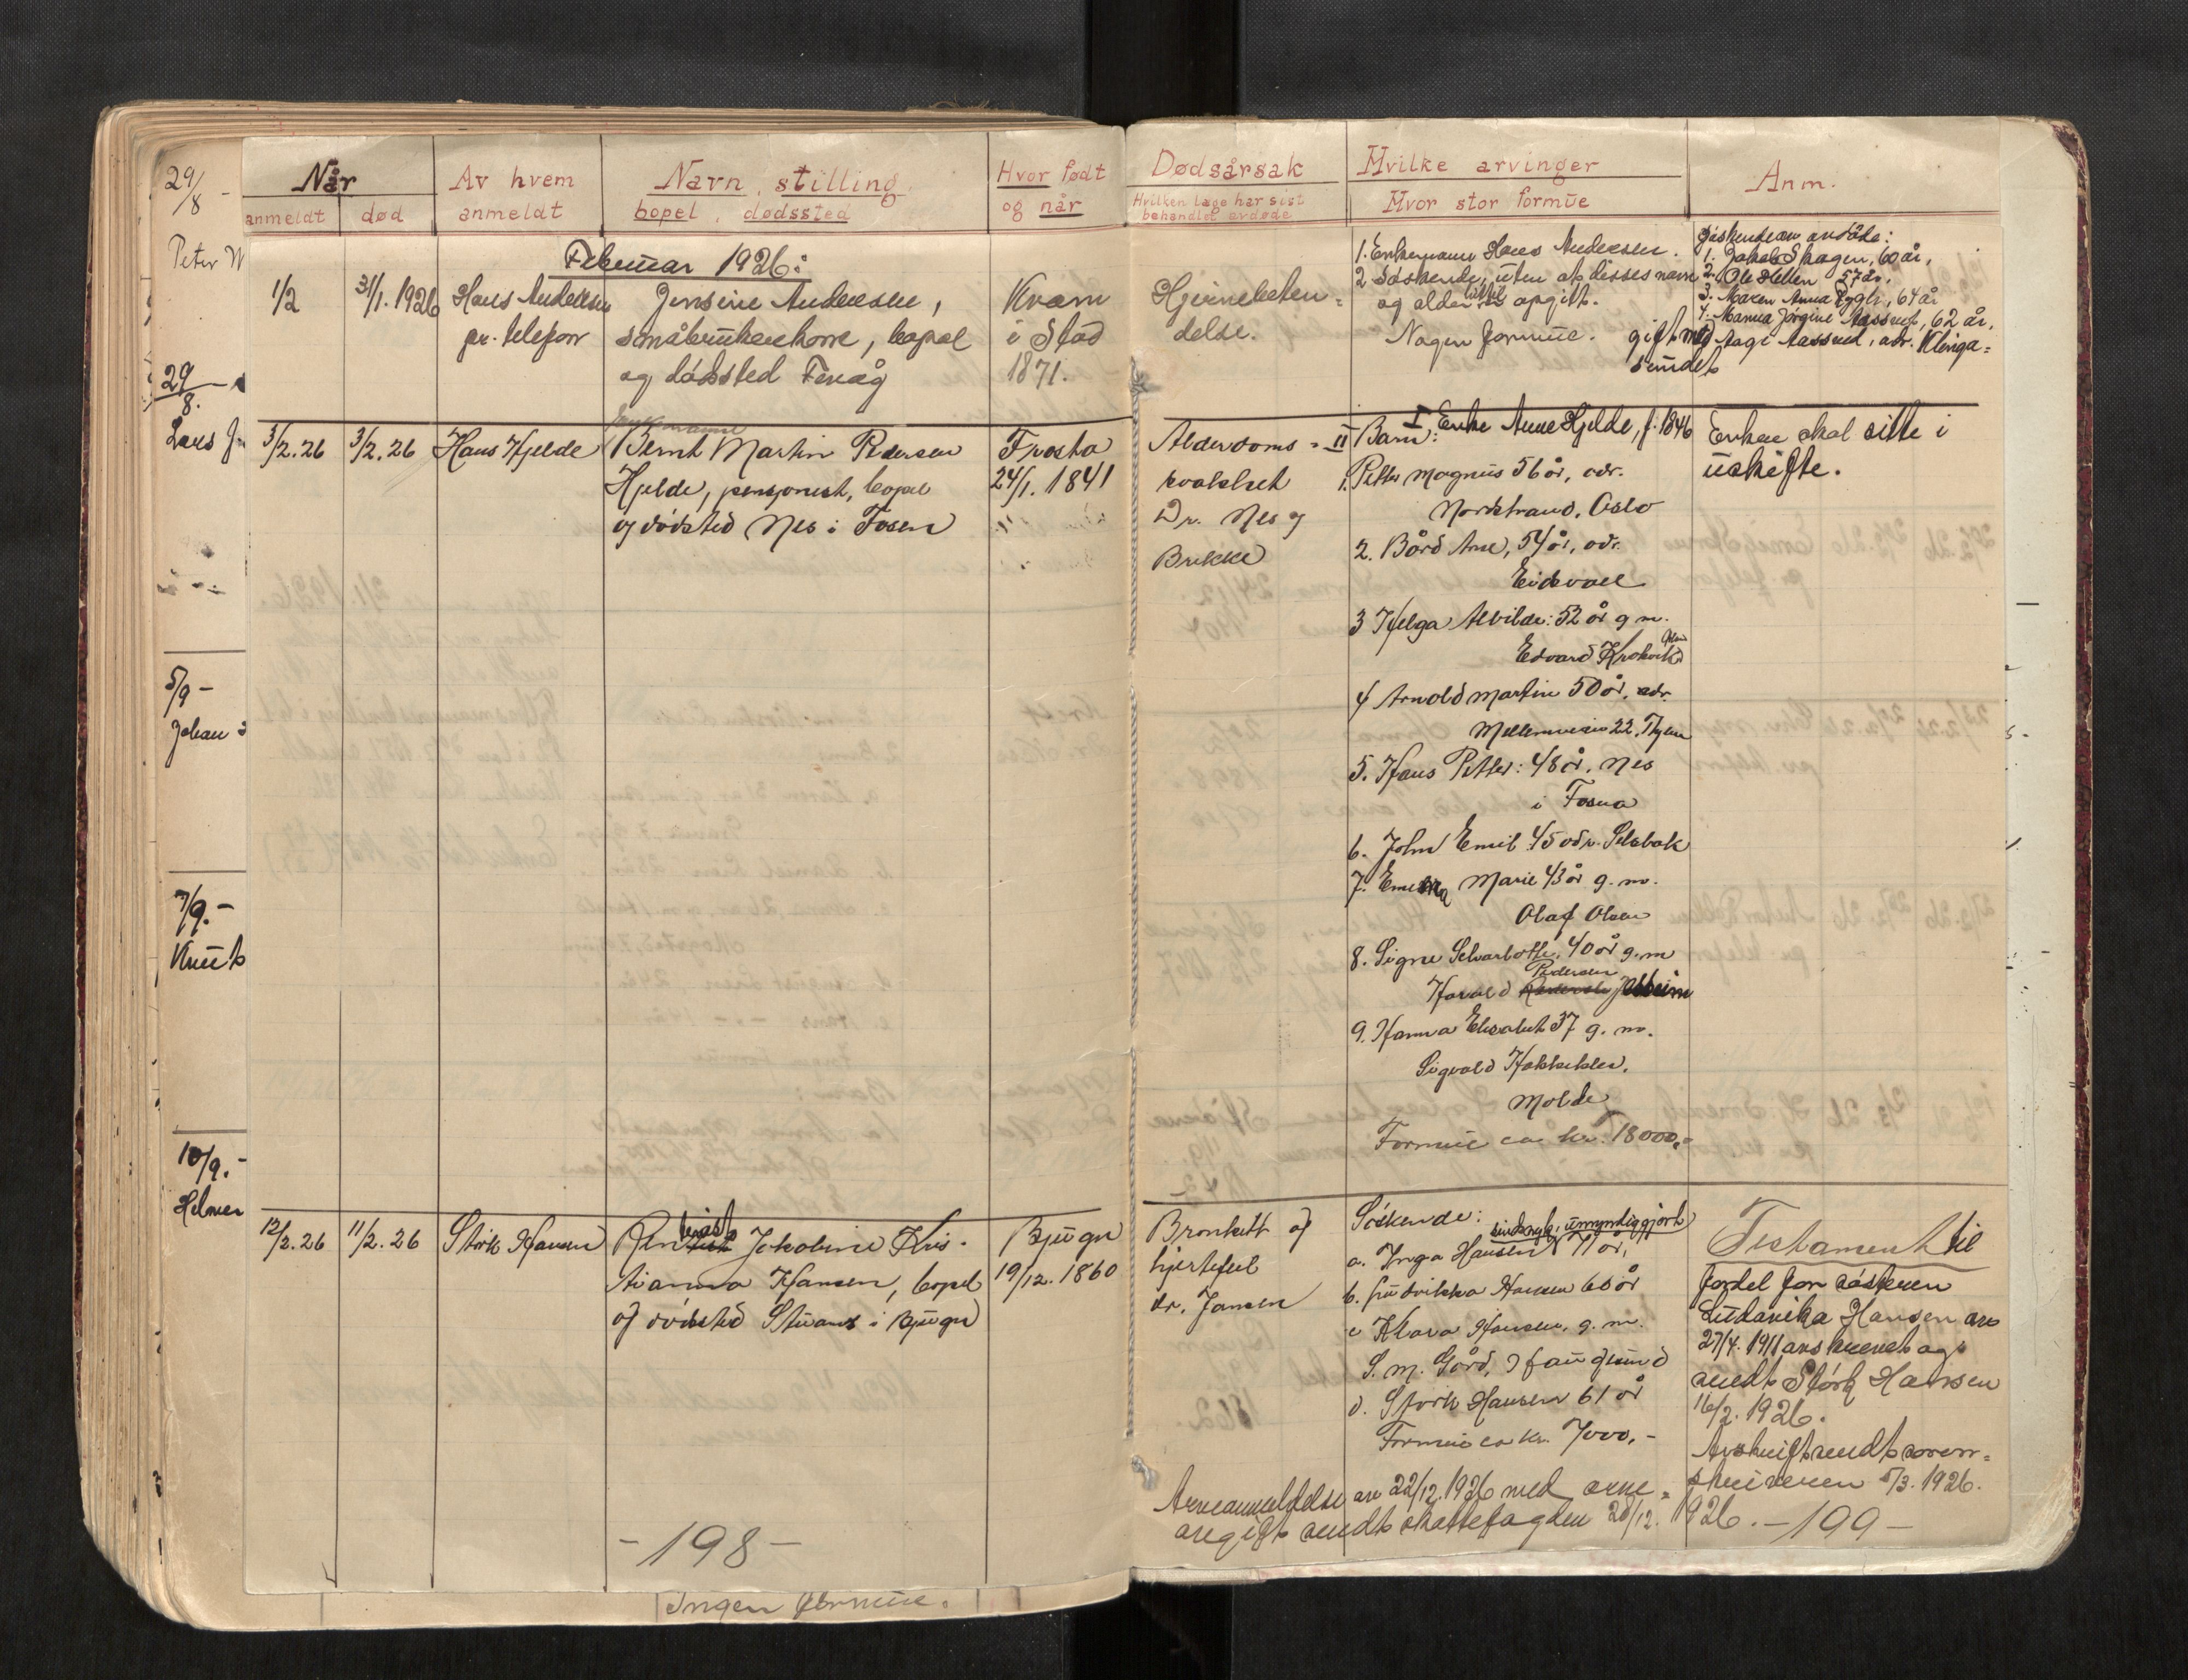 29/8 -
Peter
29/8. -
Lars
5/9 -
Johan
7/9. -
Knut
10/9. -
Helmer
Når
anmeldt død
Av hvem
anmeldt
Navn, stilling,
bopel, dødssted
Hvor født
og når
Februar 1926:
1/2
31/1. 1926
Hans Andersen
pr. telefon
Jensine Andersen,
småbrukerkone, bopel
og dødssted Fevåg
Kvam
i Stod
1871.
3/2. 26
3/2. 26
Hans Hjelde
Bernt Martin Pedersen
Hjelde, pensjonist, bopel
og dødsted Nes i Fosen
Frosta
24/1. 1841
12/2. 26
11/2. 26
Stork Hansen
Jakobine Kris-
tianna Hansen, bopel
og dødsted i Bjugn
Bjugn
19/12. 1860
- 198 -
Ingen formue.
Dødsårsak
Hvilken læge har sist
behandlet avdøde
Hvilke arvinger
Hvor stor formue
Anm.
Hjernebeten=
delse.
1. Enkemann Hans Andersen.
2 Søskende, uten at disses navn
og alder opgitt.
Nogen formue.
Søskende av avdøde:
1. Jakob Skagen, 60 år,
2. Ole Hellen 57 år,
3. Maren Anna 64 år
4. Manna Jørgine Aassved, 62 år,
gift med Aage Aassved, adr. Klinga=
sundet
Alderdoms=
svakhet
Dr. Nes og
Brekke
I Enke Anne Hjelde, f. 1846
II Barn:
1. Petter Magnus 56 år, adr.
Nordstrand, Oslo
2. Bård Arne, 54 år, adr.
Eidsvoll
3 Helga Alvilde: 52 år g m.
Edvard
4 Arnold Martin 50 år, adr.
Mellemveien 22, Thjem
5. Hans Petter: 48 år, Nes
i Fosna
6. John Emil 45 adr. Selsbak
7. Emma Marie 43 år g. m.
Olaf Olsen
8. Signe 40 år g. m
Pedersen
Harald
9. Hanna Elisabet 37 g. m.
Sigvald
Molde
Formue ca kr. 18000,-
Enken skal sitte i
uskifte.
Bronkitt og
hjertefeil
dr. Jansen
Søskende:
sindssyk, umyndiggjort
a. Inga Hansen 71 år,
b. Ludvikka Hansen 68 år
c Klara Hansen, g. m.
S. m. Gård, Haugsund
d. Stork Hansen 61 år
Formue ca kr. 7000,-
Testament til
fordel for søsteren
Ludavika Hansen av
27/4. 1911 avskrevet og
sendt Størk Hansen
16/2. 1926.
Avskrift sendt soren=
skriveren 5/3. 1926.
Arveanmeldelse av 22/12. 1926 med arve=
avgift sendt skattefogden 28/12. 1926.
- 199 -